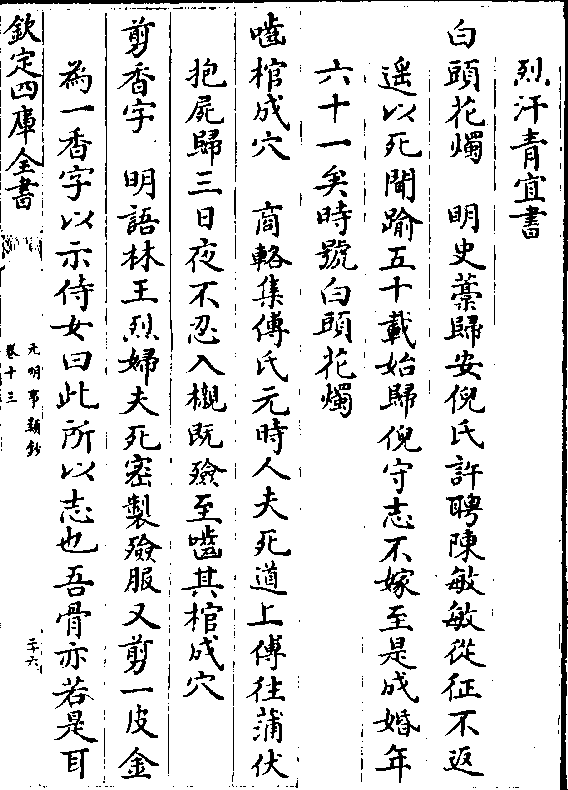 烈汗青宜書
白頭花燭　明史藁歸安倪氏許聘陳敏敏從征不返
遥以死聞踰五十載始歸倪守志不嫁至是成婚年
六十一矣時號白頭花燭
嚙棺成穴　商輅集傅氏元時人夫死道上傅往蒲伏
抱屍歸三日夜不忍入櫬既殮至嚙其棺成穴
剪香字　明語林王烈婦夫死密製殮服又剪一皮金
為一香字以示侍女曰此所以志也吾骨亦若是耳
欽定四庫全書
元明事類鈔
卷十三
二十六